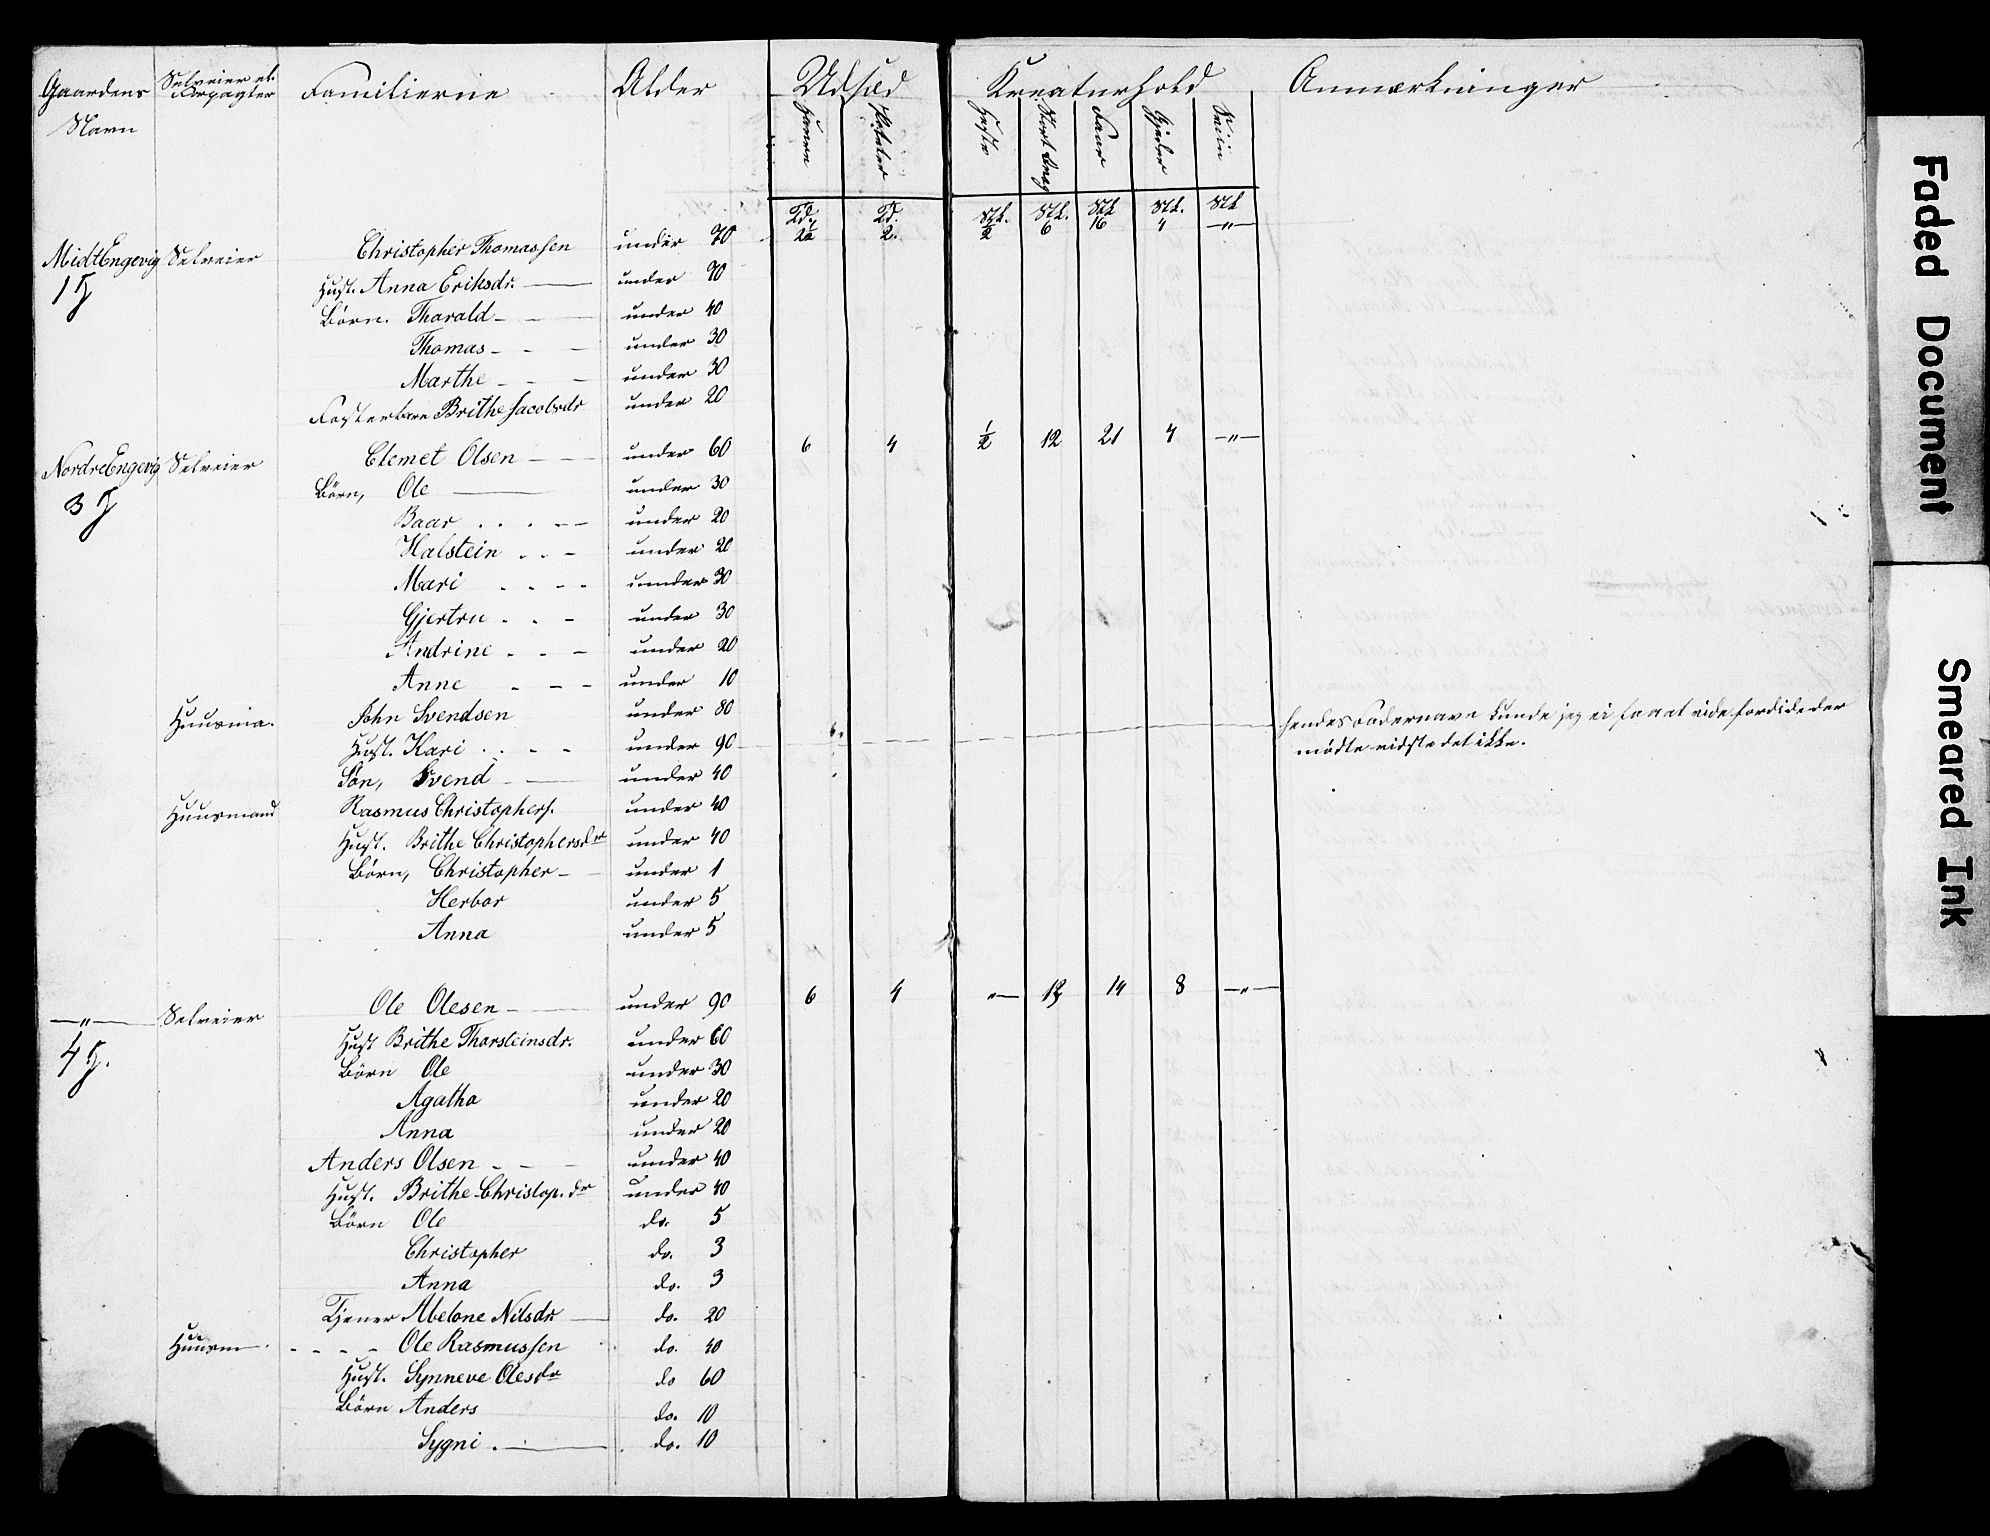 Gaardens Selveier el. Familierne Alder Udsæd Kreaturhold Anmærkninger
Navn Forpagter
Havre Poteter Heste Stort Qvæg Faar Gjeder Sviin
Td. Td. Stk. Stk. Stk Stk. Stk
Midt Engevig Selveier Christopher Thomassen under 70 2½ 2. ½ 6 16 4 —"—
Hust. Anna Eriksdr. under 70
Børn. Tharald under 40
Thomas under 30
Marthe under 30
Fosterbarn Brithe Jacobsdr under 20
Nordre Engevig Selveier Clemet Olsen under 60 6 4 ½ 12 21 4 —"—
3
Børn, Ole under 30
Baar under 20
Halstein under 20
Mari under 30
Gjertru under 30
Andrine under 20
Anne under 10
Huusma. John Svendsen under 80
Hust. Kari under 90 hendes Fadernavn kunde jeg ei faa at vide fordi de der
mødte vidste det ikke.
Søn, Svend under 40
Huusmand Rasmus Christophers. under 40
Hust. Brithe Christophersdr under 40
Børn, Christopher under 1
Herbor under 5
Anna under 5
—"— Selveier Ole Olesen under 90 6 4 "— 12 14 8 —"—
4
Hust Brithe Thorsteinsdr. under 60
Børn Ole under 30
Agatha under 20
Anna under 20
Anders Olsen under 40
Hust. Brithe Christop. dr under 40
Børn Ole do. 5
Christopher do. 3
Anna do. 3
Tjener Abelone Nilsdr do. 20
Huusm Ole Rasmussen do. 40
Hust. Synneve Olesdr do 60
Børn Anders do. 10
Sygni do. 10
Faded Document
Smeared Ink